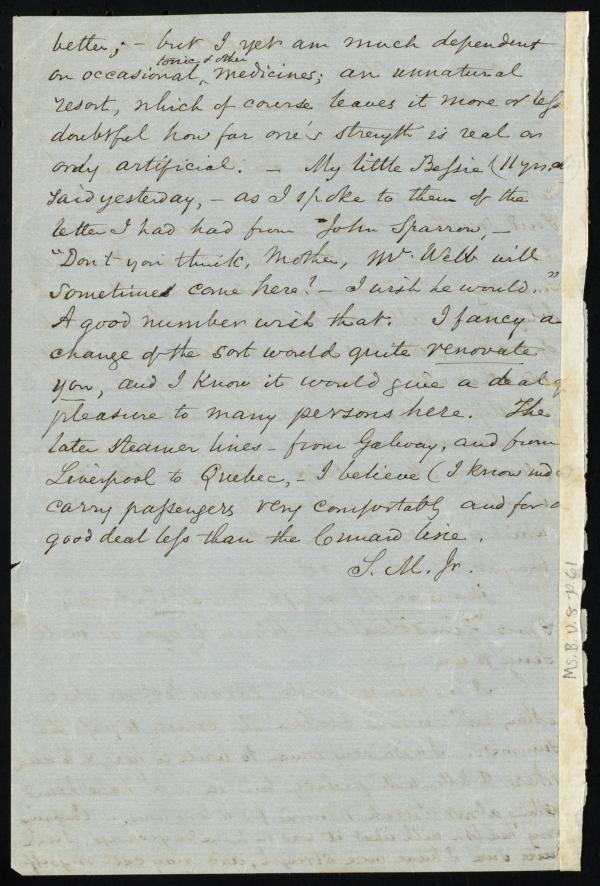 better; – but I yet am much dependent
on occasional, tonic & other medicines; an unnatural
resort, which of course leaves it more or less
doubtful how far one's strength is real or
only artificial. – My little Bessie (11 yrs.
said yesterday, – as I spoke to them of the
letter I had had from John Sparrow, –
"Don't you think, Mother, Mr. Webb will
sometimes come here? – I wish he would."
A good number wish that. I fancy a
change of the sort would quite renovate
you, and I know it would give a deal of
pleasure to many persons here. The
later steamer lines – from Galway, and from
Liverpool to Quebec, – I believe (I know
carry passengers very comfortably and for a
good deal less than the Cunard line.
S. M. Jr.
Ms. B. 1.6 v. 8 p. 61